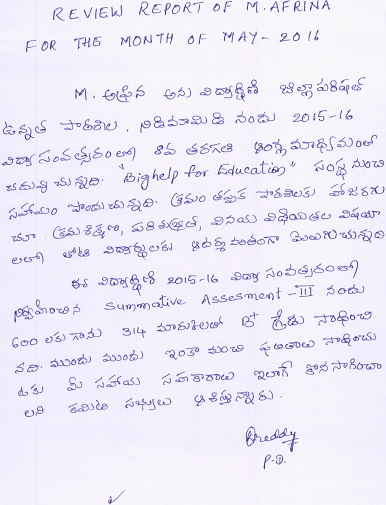 REVIEW REPORT OF M. AFRINA
FOR THE MONTH OF MAY - 2016
M. అఫ్రిన అను విద్యార్థిని జిల్లాపరిషత్
ఉన్నత పాఠశాల, నిడిమామిడి నందు 2015-16
విద్యాసంవత్సరంలో 8వ తరగతి ఆంగ్ల మాధ్యమంలో
చదువుచున్నది. "Bighelp for Education" సంస్థ నుంచి
సహాయం పొందుచున్నది. క్రమం తప్పక పాఠశాలకు హాజరగు
చూ క్రమశిక్షణ, పరిశుభ్రత, వినయ విధేయతల విషయా
లలో తోటి విద్యార్థులకు ఆదర్శవంతంగా మెలుగుచున్నది
ఈ విద్యార్థిని 2015-16 విద్యా సంవత్సరంలో
నిర్వహించిన Summative Assesment - III నందు
600 లకు గాను 314 మార్కులతో B+ గ్రేడు సాధించి
నది. ముందు ముందు ఇంకా మంచి ఫలితాలు సాధించు
టకు మీ సహాయ సహకారాలు ఇలాగే కొనసాగించా
లని కమిటి సభ్యులు ఆశిస్తున్నారు.
P.D.